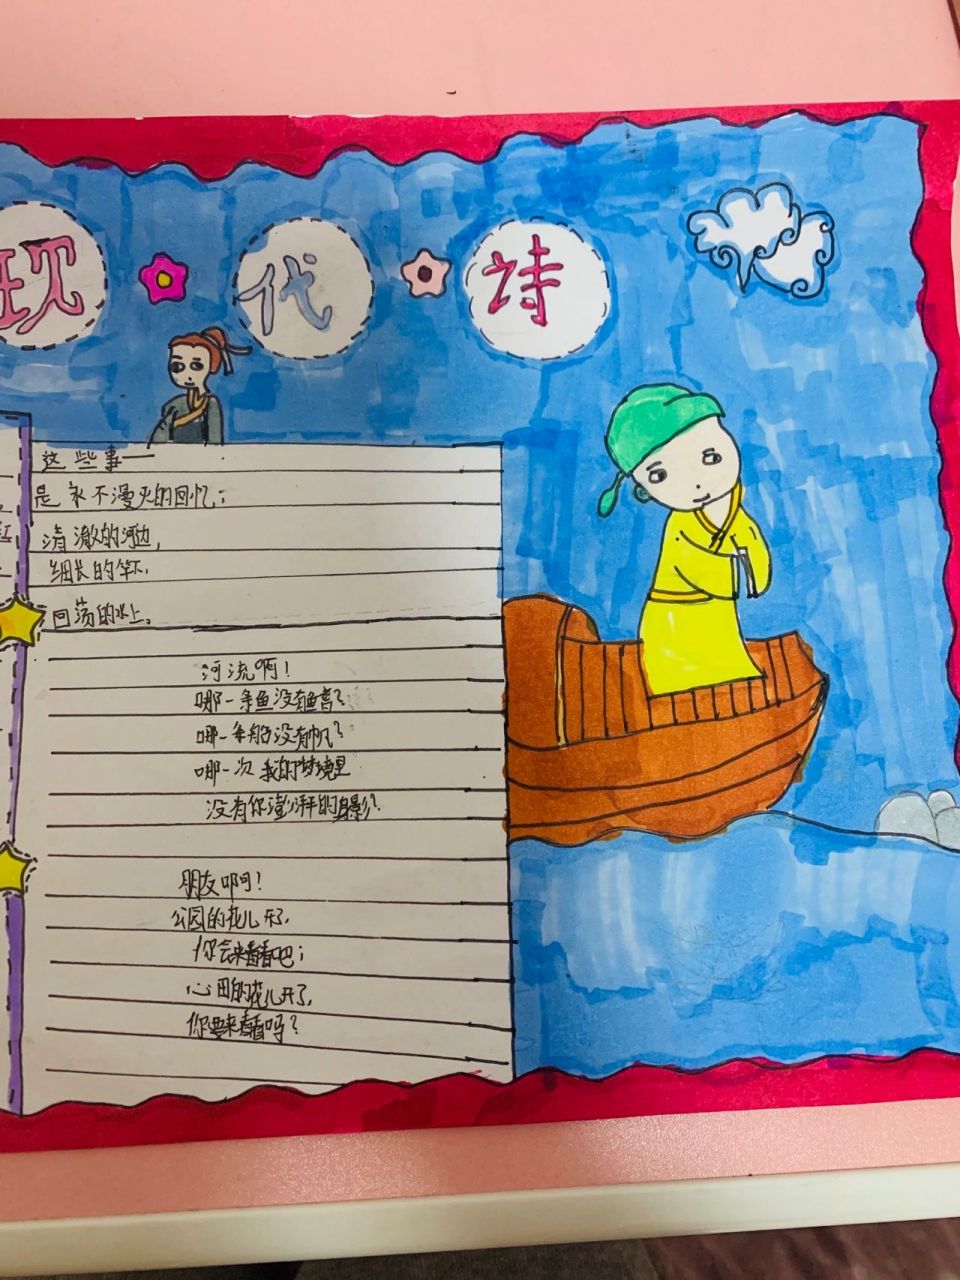 现代诗
这些事——
是永不漫灭的回忆；
清澈的河边，
细长的竿下，
回荡的水上。
河流啊！
哪一条鱼没有鱼言？
哪一条船没有帆？
哪一次我的梦境里
没有你澎湃的身影？
朋友啊！
公园的花儿开了，
你会来看看吧；
心田的花儿开了，
你要来看看吗？